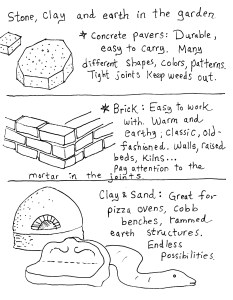 Stone, Clay and earth in the garden
* Concrete pavers: Durable,
easy to carry. Many
different shapes, colors, patterns.
Tight joints keep weeds out.
* Brick: Easy to work
with. Warm and
earthy; classic, old-
fashioned. Walls, raised
beds, kilns...
Pay attention to the
mortar in the joints.
Clay & Sand: Great for
pizza ovens, cobb
benches, rammed
earth structures.
Endless
possibilities